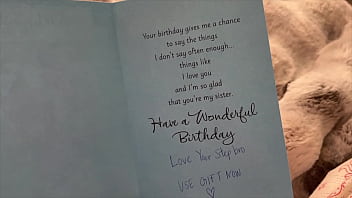 Your birthday gives me a chance
to say the things
I don't say often enough...
things like
I love you
and I'm so glad
that you're my sister.
Have a Wonderful
Birthday
Love Your Step bro
USE GIFT NOW
♡